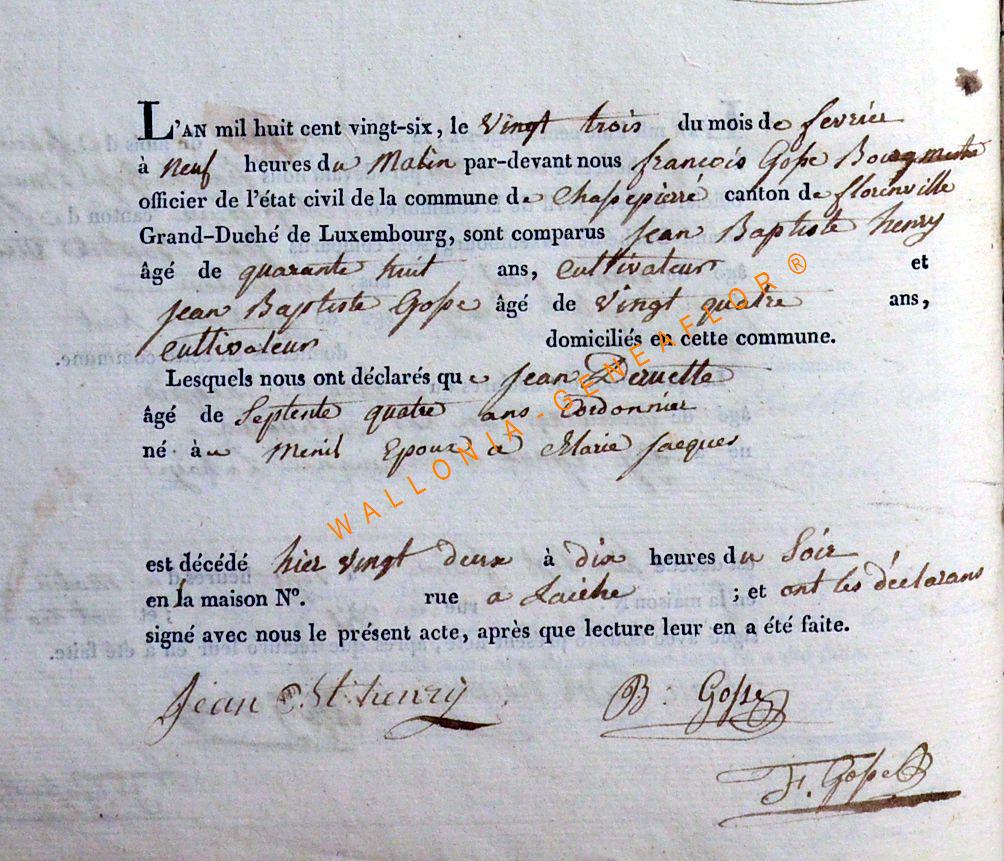 L'AN mil huit cent vingt-six, le vingt trois du mois de fevrier
à neuf heures du Matin par-devant nous françois Gosse Bourgmestre
officier de l'état civil de la commune de Chassepierre canton de florinville
Grand-Duché de Luxembourg, sont comparus Jean Baptiste henry
âgé de quarante huit ans, cultivateur et
jean Baptiste Gosse âgé de vingt quatre ans,
cultivateur domiciliés en cette commune.
Lesquels nous ont déclarés que Jean Deruette
âgé de Septente quatre ans Cordonnier
né au Menil Epoux de Marie jacques
est décédé hier vingt deux à dix heures du Soir
en la maison N°. rue a Laiche ; et ont les déclarans
signé avec nous le présent acte, après que lecture leur en a été faite.
Jean Bt. henry B: Gosse
F. Gosse
WALLONIA-GENEAFLOR ®